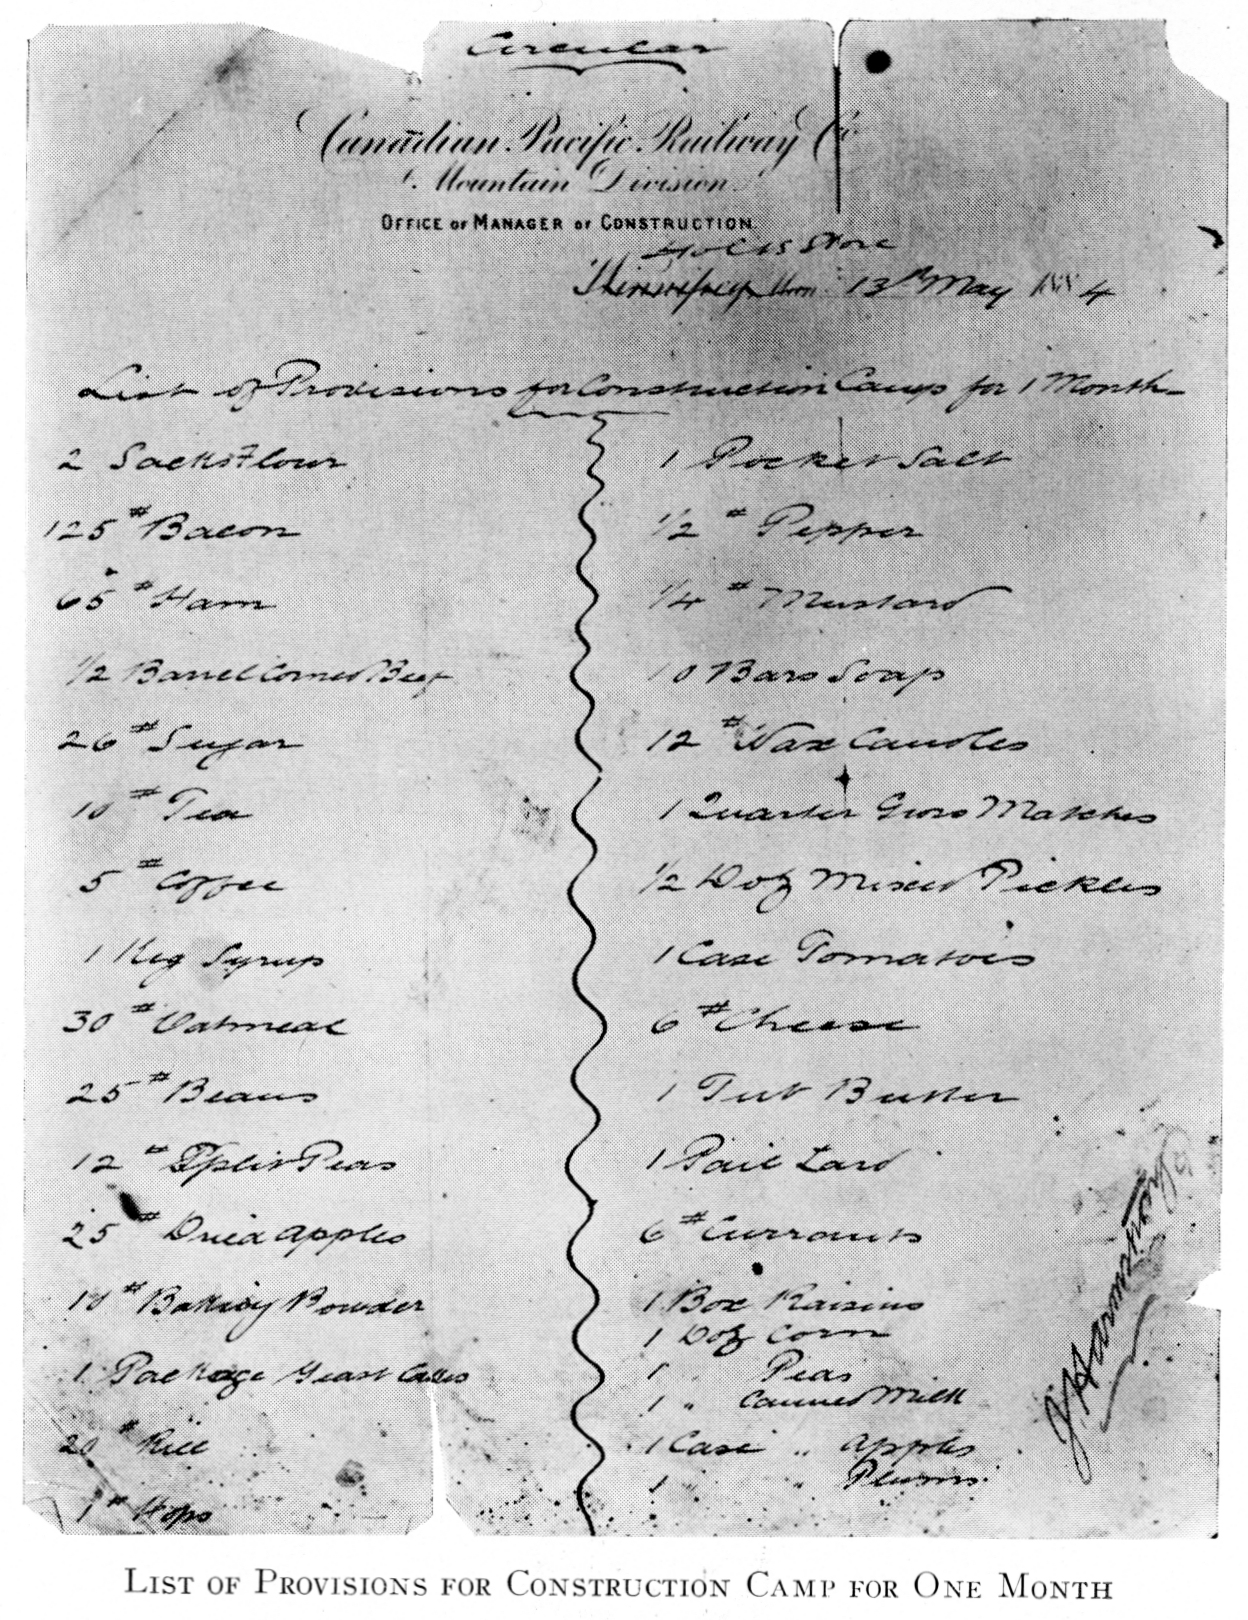 Circular
Canadian Pacific Railway Co
Mountain Division
OFFICE OF MANAGER OF CONSTRUCTION.
Holts Store
Winnipeg Man 13th May 1884
List of Provisions for Construction Camp for 1 Month
2 Sacks Flour
125 # Bacon
65 # Ham
1/2 Barrel Corned Beef
26 # Sugar
10 # Tea
5 # Coffee
1 Keg Syrup
30 # Oatmeal
25 # Beans
12 # Split Peas
25 # Dried Apples
10 # Baking Powder
1 Package Yeast Cakes
20 # Rice
1 # Hops
1 Pocket Salt
1/2 # Pepper
1/4 # Mustard
10 Bars Soap
12 # Wax Candles
1 Quarter Gross Matches
1/2 Doz Mixed Pickles
1 Case Tomatoes
6 # Cheese
1 Tub Butter
1 Pail Lard
6 # Currants
1 Box Raisins
1 Doz Corn
1 " Peas
1 " Canned Milk
1 Case " Apples
1 " " Plums
J Harmstrong
LIST OF PROVISIONS FOR CONSTRUCTION CAMP FOR ONE MONTH